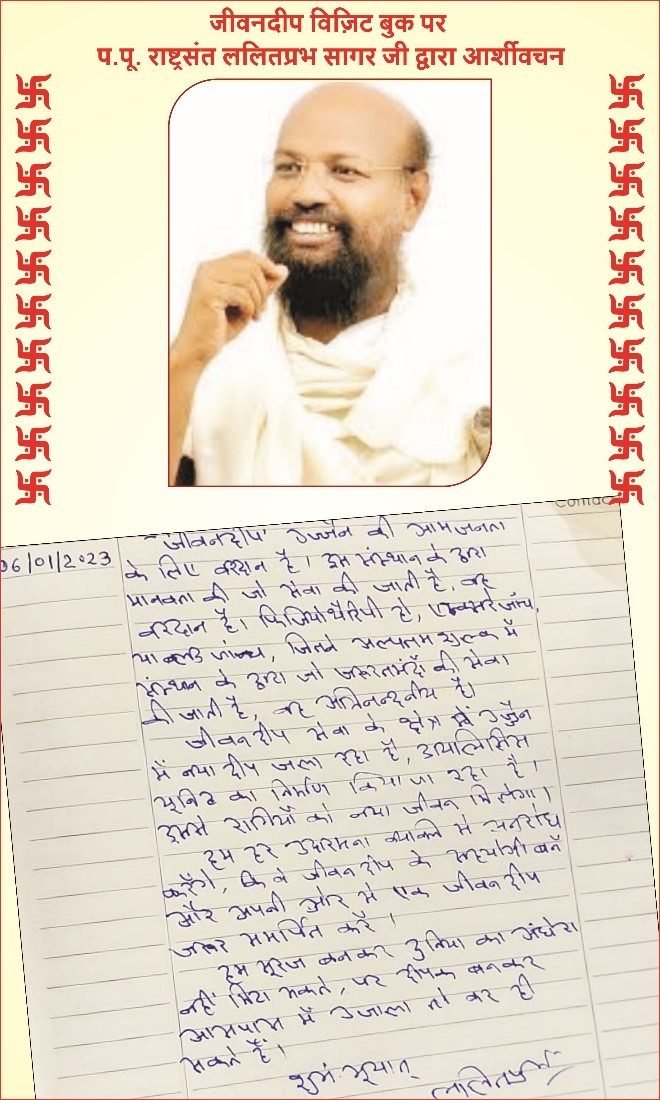 जीवनदीप विज़िट बुक पर
प.पू. राष्ट्रसंत ललितप्रभ सागर जी द्वारा आर्शीवचन
Contac
06/01/2023
'जीवनदीप' उज्जैन की आमजनता
के लिए वरदान है। इस संस्थान के द्वारा
मानवता की जो सेवा की जाती है, वह
वरदान है। फिजियोथैरेपी हो, एक्सरे जांच,
या ब्लड जांच, जितने अल्पतम शुल्क में
संस्थान के द्वारा जो जरूरतमंदों की सेवा
की जाती है, वह अभिनन्दनीय है।
जीवनदीप सेवा के क्षेत्र में उज्जैन
में नया दीप जला रहा है, डायलिसिस
यूनिट का निर्माण किया जा रहा है।
इससे रोगियों को नया जीवन मिलेगा।
हम हर उदारमना व्यक्ति से अनुरोध
करेंगे, कि वे जीवनदीप के सहयोगी बनें
और अपनी ओर से एक जीवनदीप
जरूर समर्पित करें।
हम सूरज बनकर दुनिया का अंधेरा
नहीं मिटा सकते, पर दीपक बनकर
आसपास में उजाला तो कर ही
सकते हैं।
शुभं भूयात्
ललितप्रभ